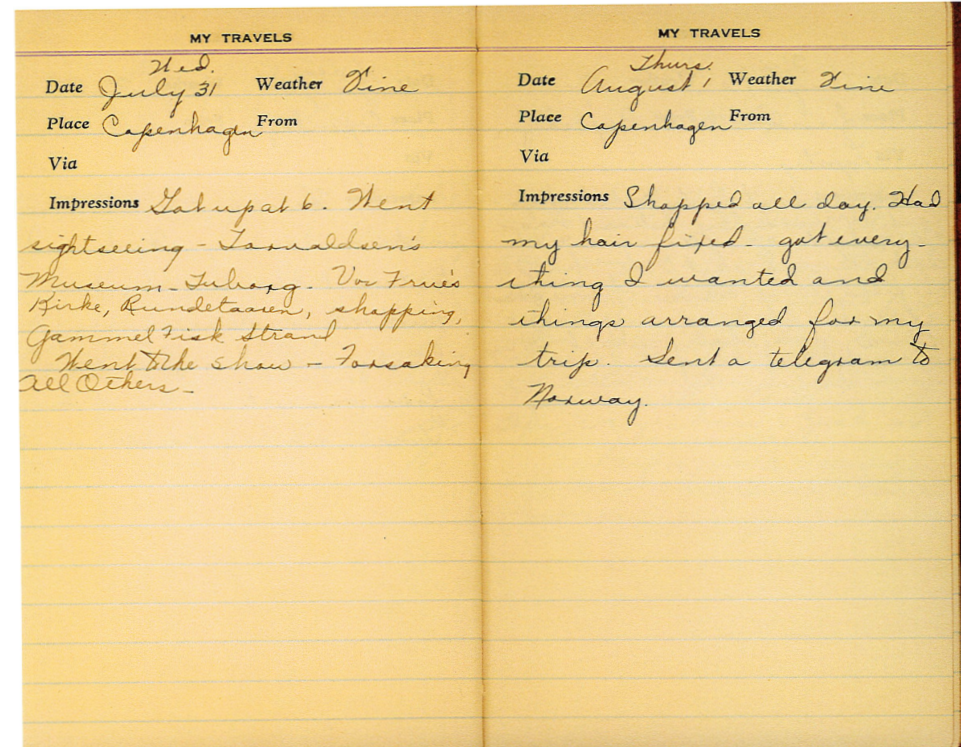 MY TRAVELS
Wed.
Date July 31 Weather Fine
Place Copenhagen From
Via
Impressions Got up at 6. Went
sightseeing - Torvaldsen's
Museum - Tuborg. Vor Frue's
Kirke, Rundetaaren, shopping,
Gammel Fisk Strand
Went to the show - Forsaking
All Others -
MY TRAVELS
Thurs.
Date August 1 Weather Fine
Place Copenhagen From
Via
Impressions Shopped all day. Had
my hair fixed - got every-
thing I wanted and
things arranged for my
trip. Sent a telegram to
Norway.